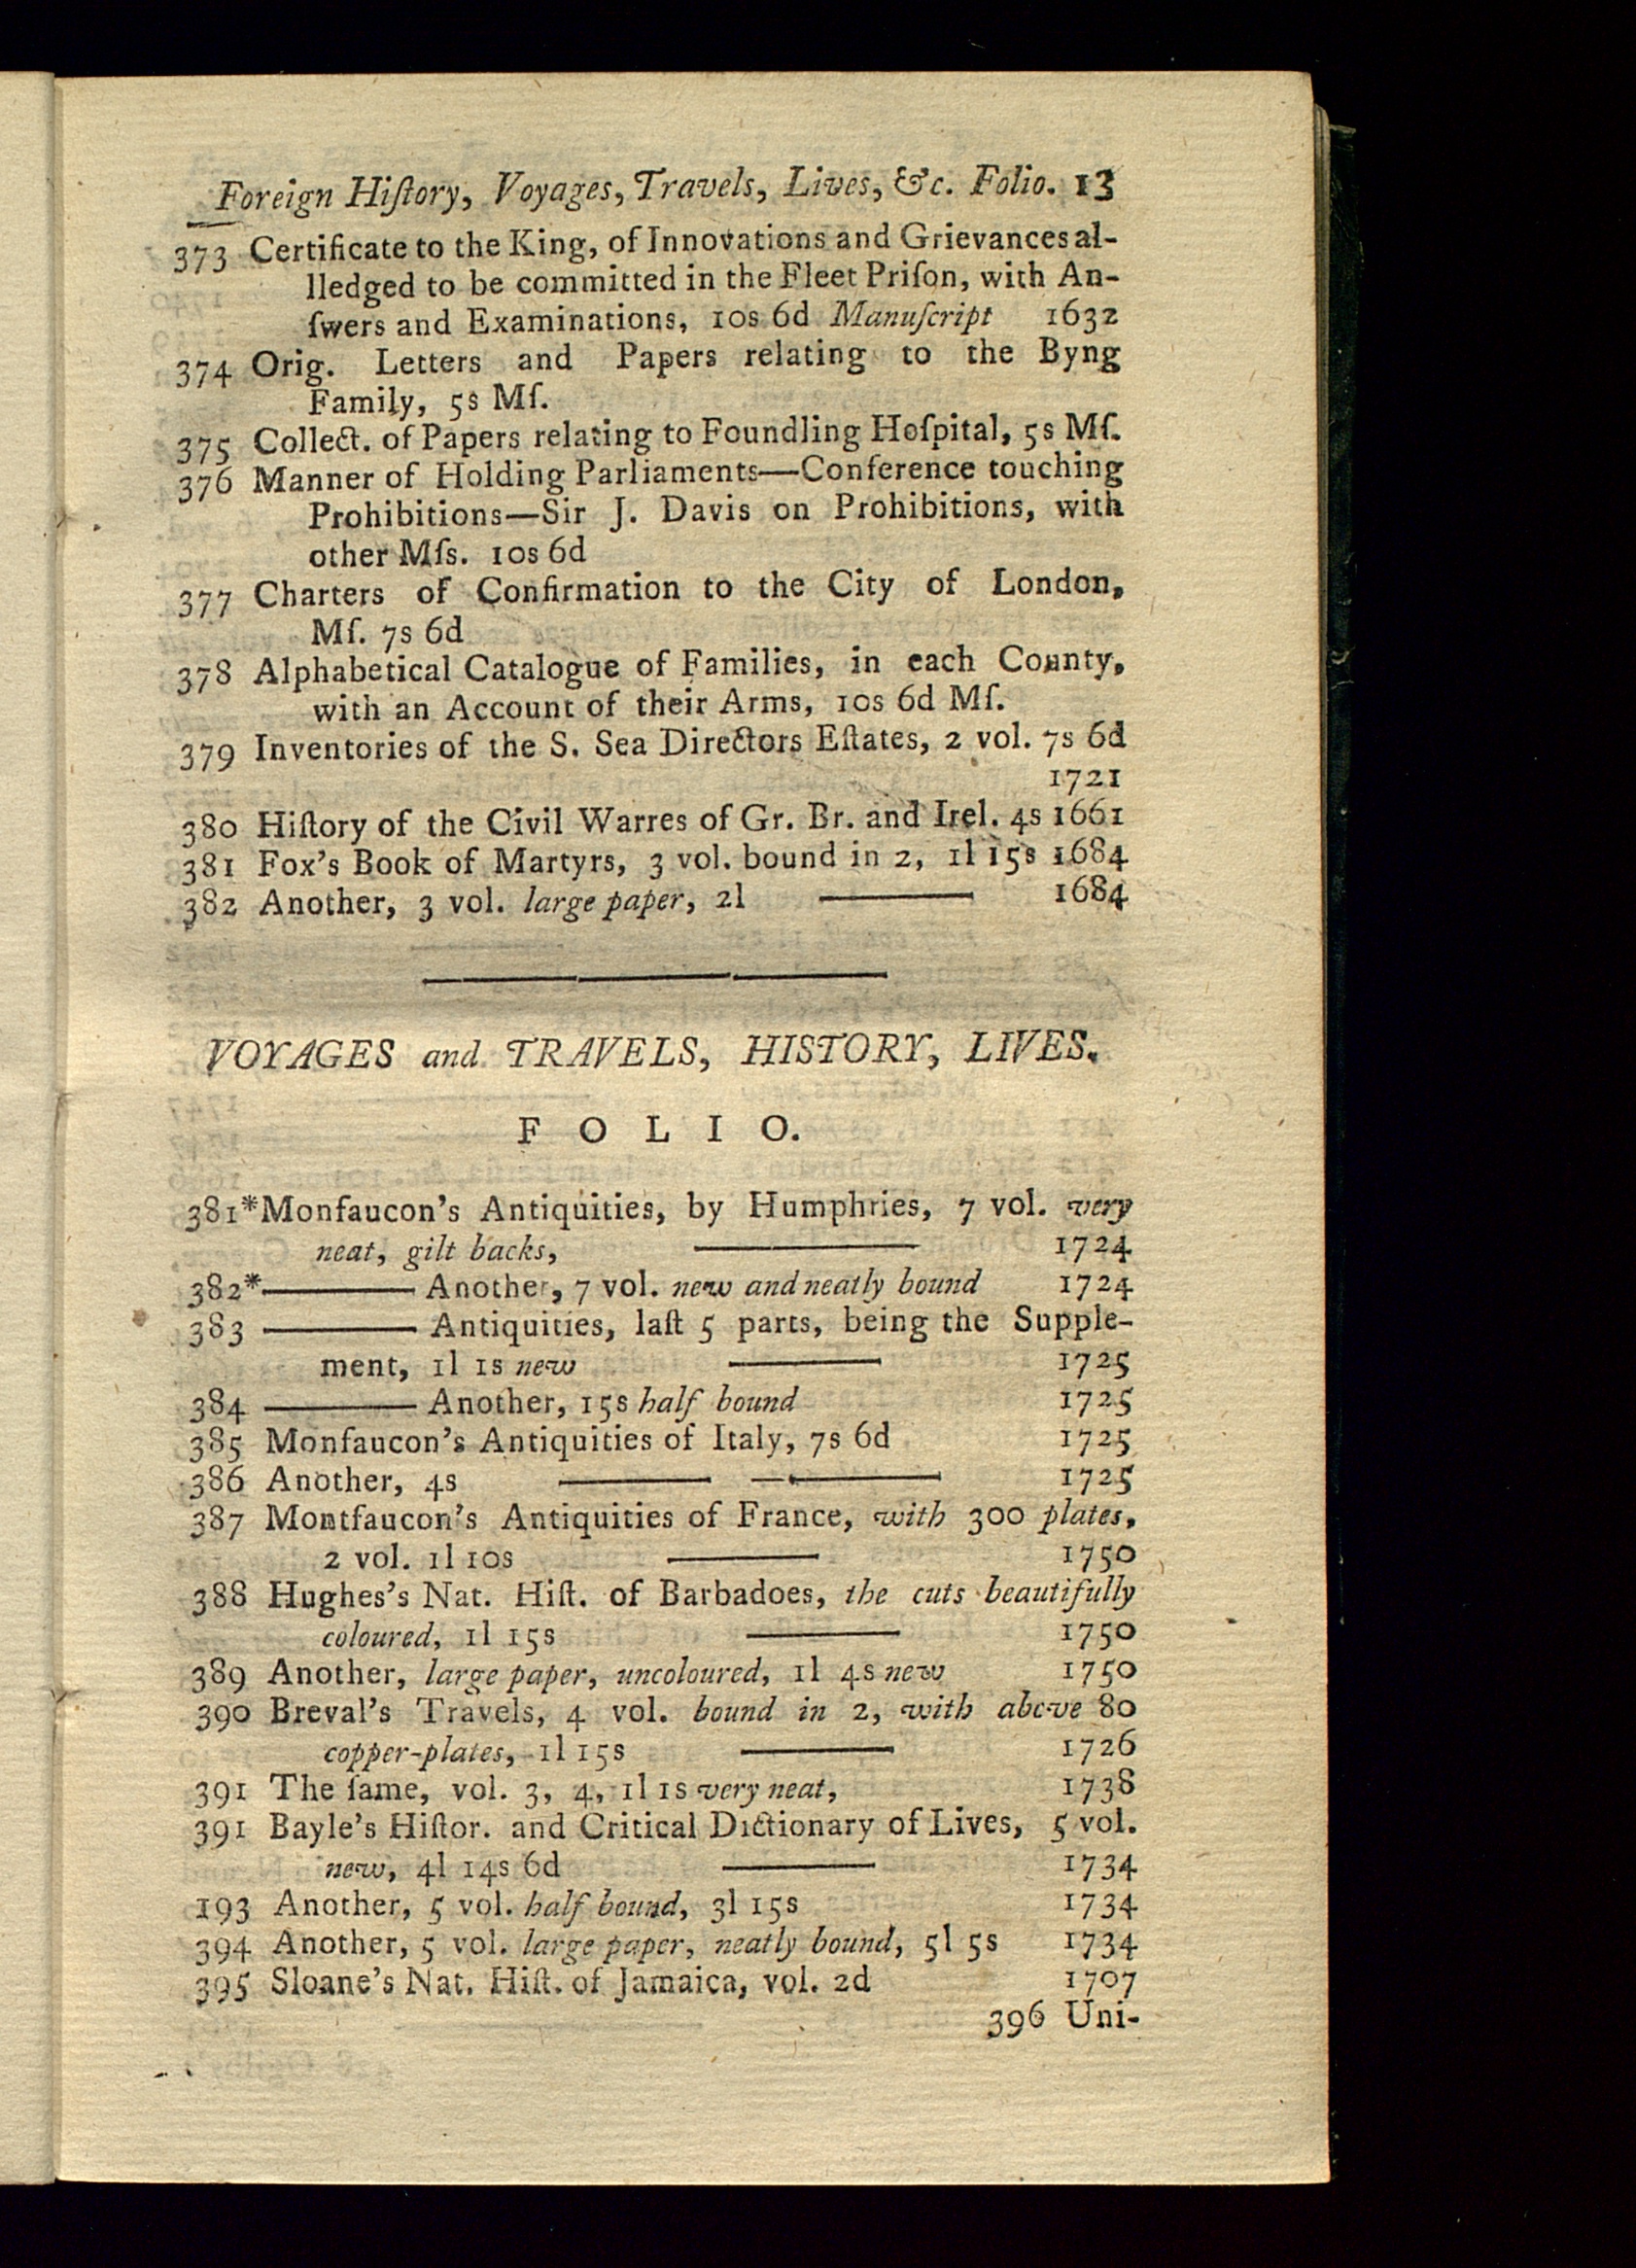 Foreign Hiſtory, Voyages, Travels, Lives, &c. Folio. 13
373 Certificate to the King, of Innovations and Grievances al-
lledged to be committed in the Fleet Priſon, with An-
ſwers and Examinations, 10s 6d Manuſcript 1632
374 Orig. Letters and Papers relating to the Byng
Family, 5s Mſ.
375 Collect. of Papers relating to Foundling Hoſpital, 5s Mſ.
376 Manner of Holding Parliaments—Conference touching
Prohibitions—Sir J. Davis on Prohibitions, with
other Mſs. 10s 6d
377 Charters of Confirmation to the City of London,
Mſ. 7s 6d
378 Alphabetical Catalogue of Families, in each County,
with an Account of their Arms, 10s 6d Mſ.
379 Inventories of the S. Sea Directors Eſtates, 2 vol. 7s 6d
1721
380 Hiſtory of the Civil Warres of Gr. Br. and Irel. 4s 1661
381 Fox's Book of Martyrs, 3 vol. bound in 2, 1l 15s 1684
382 Another, 3 vol. large paper, 2l ——— 1684
VOYAGES and TRAVELS, HISTORY, LIVES.
FOLIO.
381*Monfaucon's Antiquities, by Humphries, 7 vol. very
neat, gilt backs, ——— 1724
382*——— Another, 7 vol. new and neatly bound 1724
383 ——— Antiquities, laſt 5 parts, being the Supple-
ment, 1l 1s new ——— 1725
384 ——— Another, 15s half bound 1725
385 Monfaucon's Antiquities of Italy, 7s 6d 1725
386 Another, 4s ——— ——— 1725
387 Montfaucon's Antiquities of France, with 300 plates,
2 vol. 1l 10s ——— 1750
388 Hughes's Nat. Hiſt. of Barbadoes, the cuts beautifully
coloured, 1l 15s ——— 1750
389 Another, large paper, uncoloured, 1l 4s new 1750
390 Breval's Travels, 4 vol. bound in 2, with above 80
copper-plates, 1l 15s ——— 1726
391 The ſame, vol. 3, 4, 1l 1s very neat, 1738
391 Bayle's Hiſtor. and Critical Dictionary of Lives, 5 vol.
new, 4l 14s 6d ——— 1734
193 Another, 5 vol. half bound, 3l 15s 1734
394 Another, 5 vol. large paper, neatly bound, 5l 5s 1734
395 Sloane's Nat. Hiſt. of Jamaica, vol. 2d 1707
396 Uni-